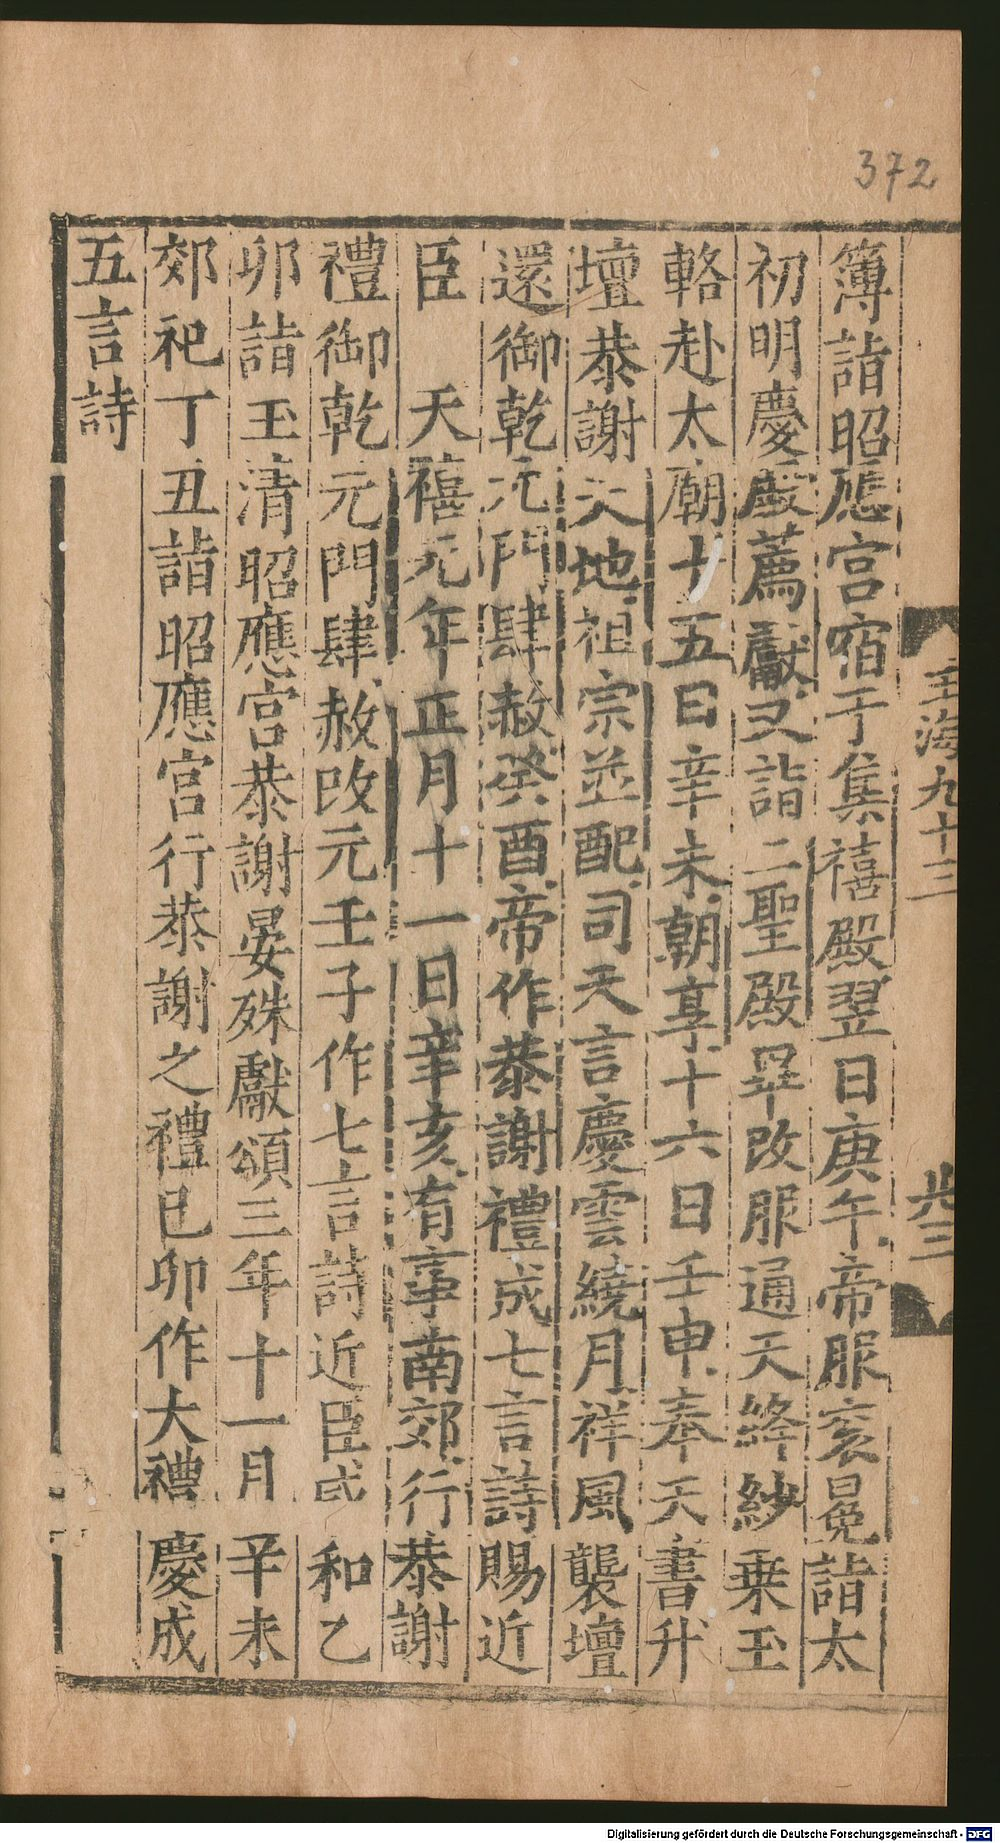 372
簿詣昭應宮宿于集禧殿翌日庚午帝服衮冕詣太
初明慶殿薦獻又詣二聖殿畢改服通天絳紗乗玉
輅赴太廟十五日辛未朝享十六日壬申奉天書升
壇恭謝天地祖宗並配司天言慶雲繞月祥風襲壇
還御乾元門肆赦癸酉帝作恭謝禮成七言詩賜近
臣　天禧元年正月十一日辛亥有事南郊行恭謝
禮御乾元門肆赦改元壬子作七言詩近臣咸和乙
卯詣玉清昭應宮恭謝晏殊獻頌三年十一月辛未
郊祀丁丑詣昭應宮行恭謝之禮已卯作大禮慶成
五言詩
玉海九十三
Digitalisierung gefördert durch die Deutsche Forschungsgemeinschaft - DFG